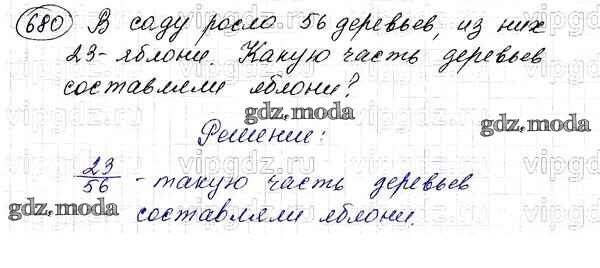 680 В саду росло 56 деревьев, из них
23 - яблони. Какую часть деревьев
составляли яблони?
gdz.moda
gdz.moda
Решение:
23/56 - такую часть деревьев
gdz.moda
составляли яблони.
gdz.moda